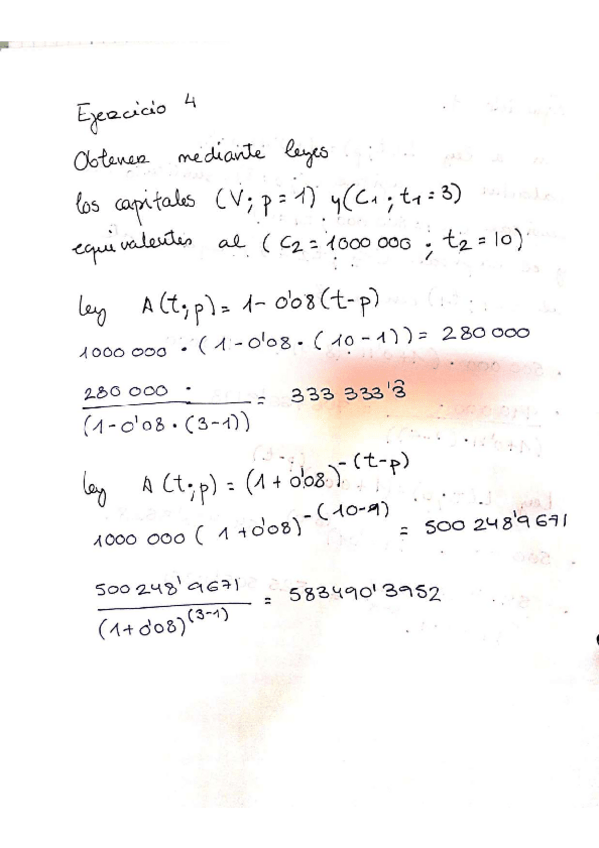 Ejercicio 4
Obtener mediante leyes
los capitales (V; p = 1) y (C1; t1 = 3)
equivalentes al (C2 = 1000 000 ; t2 = 10)
ley A(t;p) = 1 - 0'08 (t-p)
1000 000 · (1 - 0'08 · (10 - 1)) = 280 000
280 000 ·
= 333 333'3̂
(1 - 0'08 · (3-1))
ley A(t;p) = (1 + 0'08)^-(t-p)
1000 000 (1 + 0'08)^-(10-1) = 500 248'9671
500 248'9671
= 583490'3952
(1 + 0'08)^(3-1)